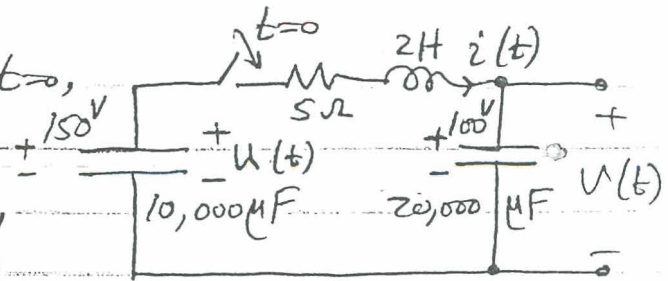 t=0
t=0,
2H i(t)
5Ω
150V
+
-
+
u(t)
-
10,000μF
+
100V
-
20,000 μF
+
v(t)
-